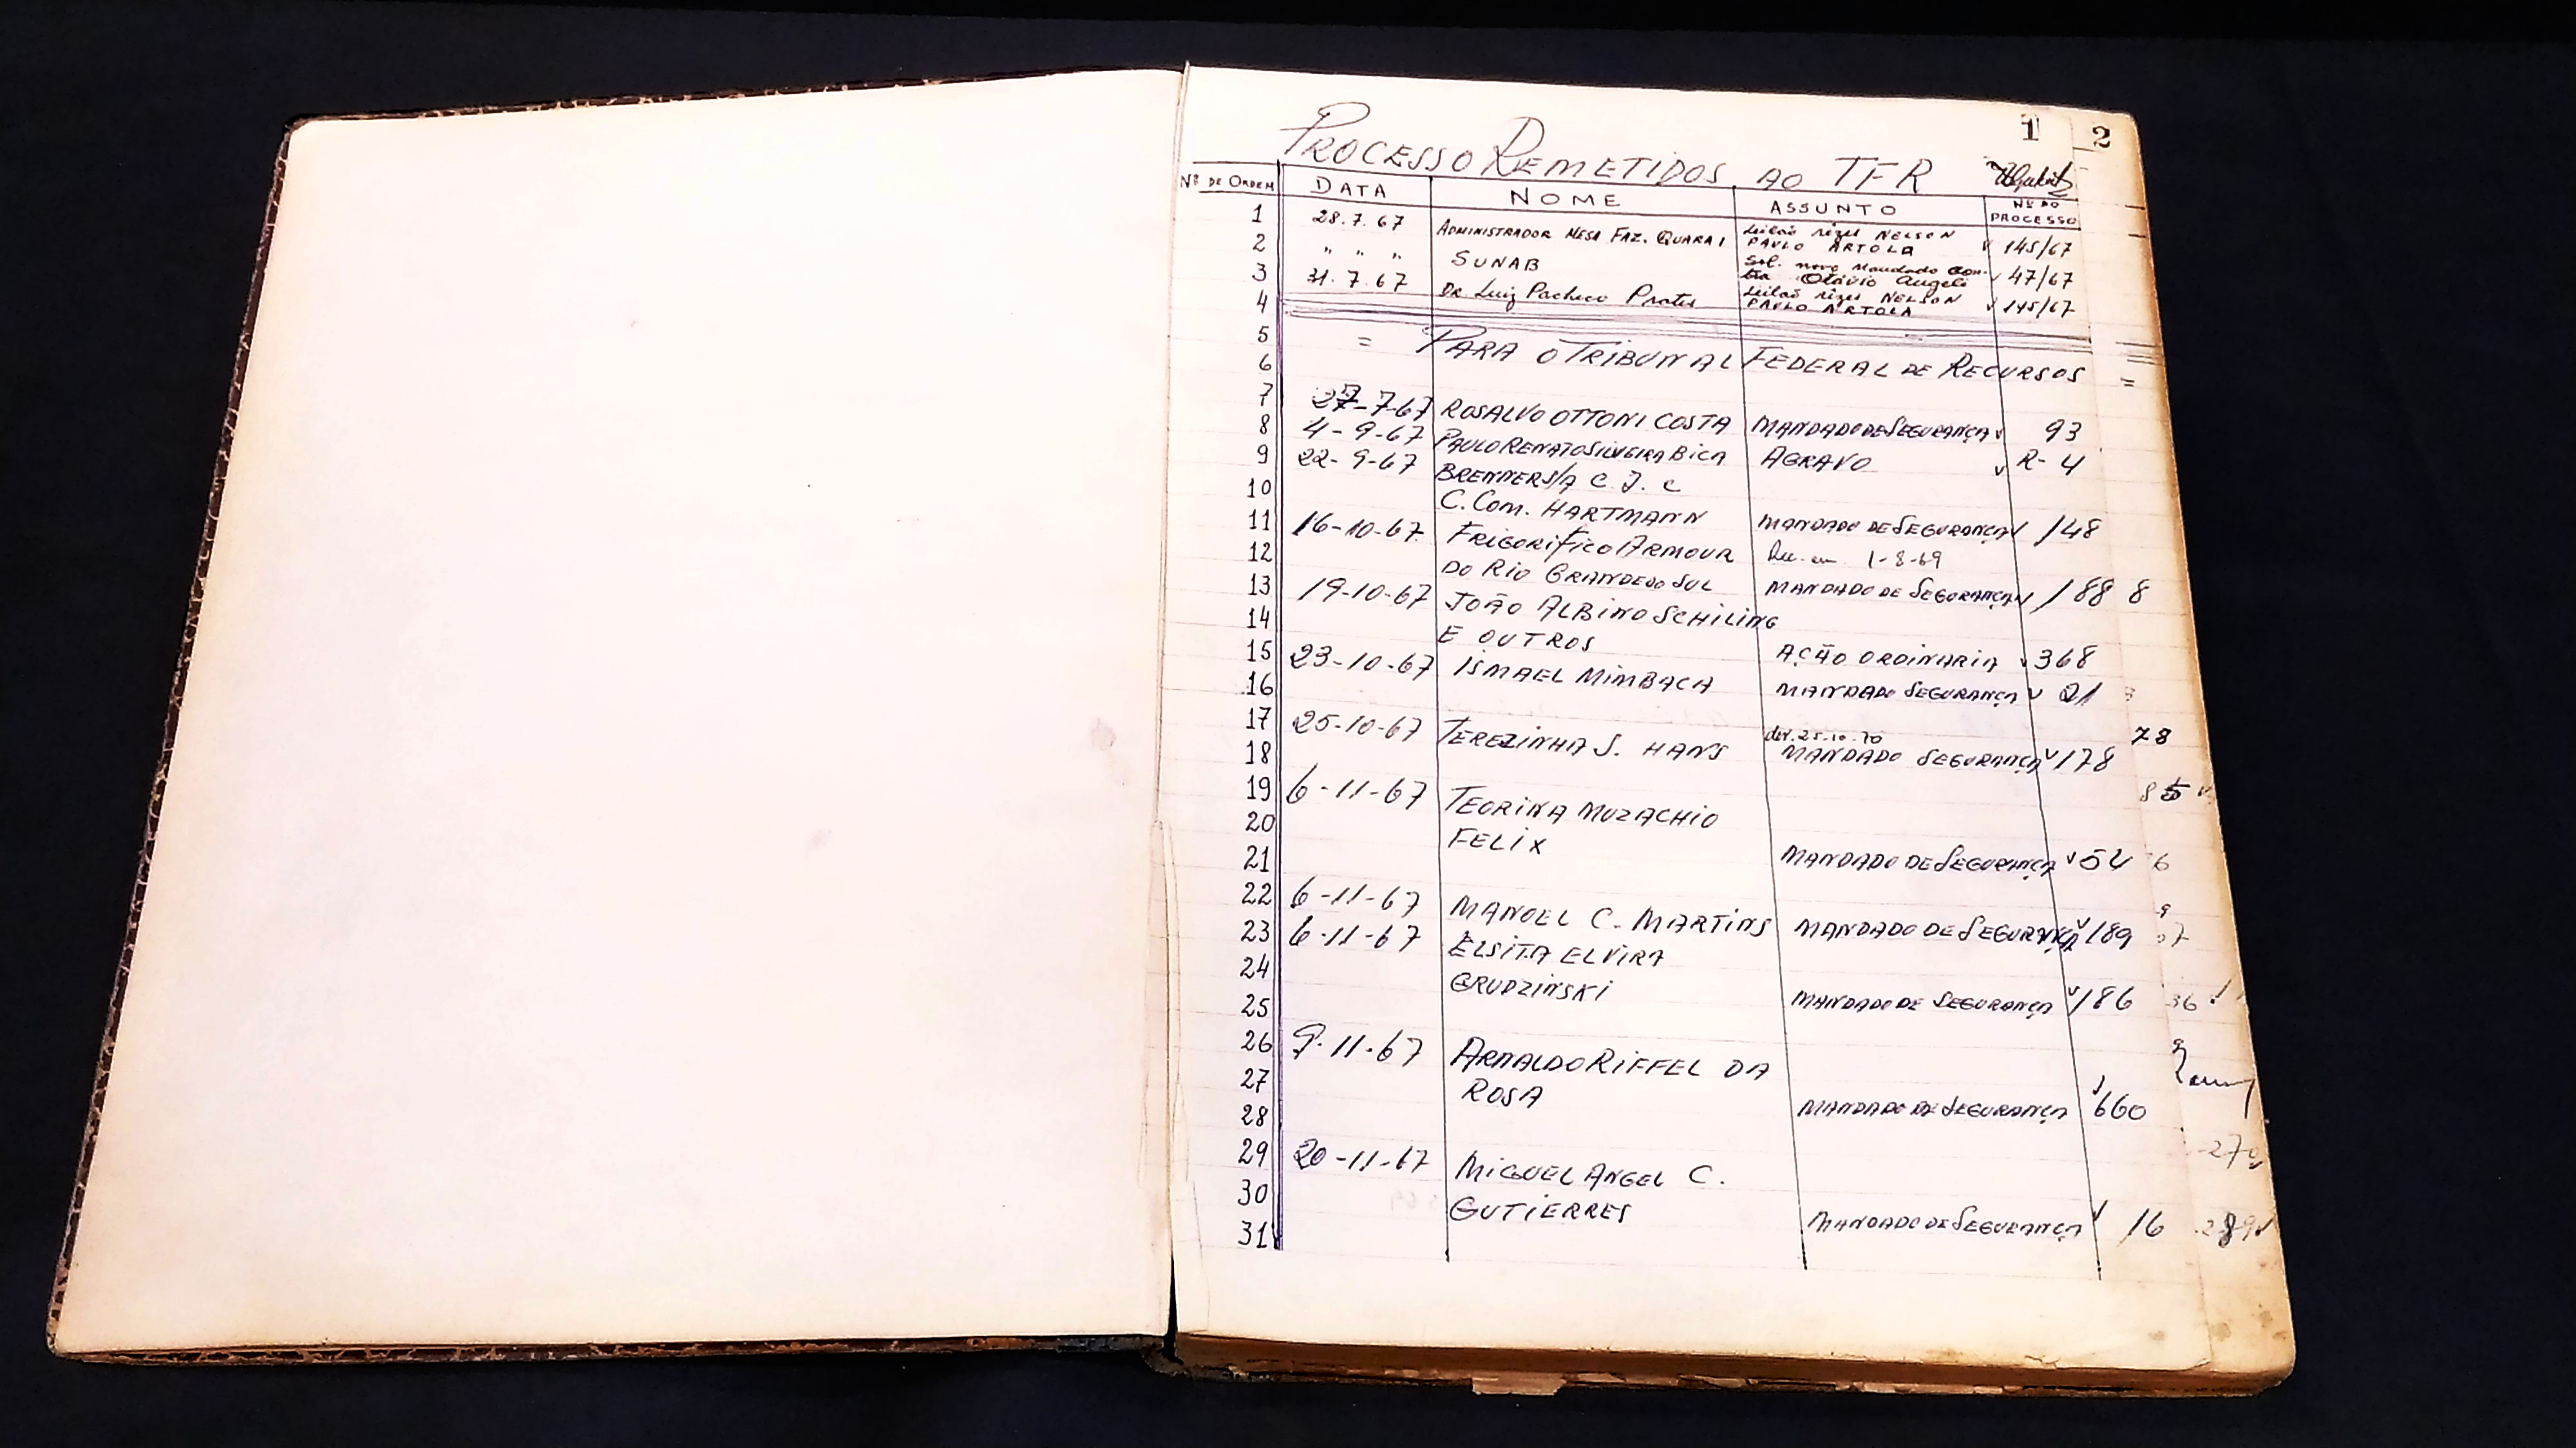 1 2
PROCESSO REMETIDOS AO TFR
Nº DE ORDEM DATA NOME ASSUNTO Nº DO PROCESSO
1 28.7.67 ADMINISTRADOR MESA FAZ. QUARAI Leilão rêzes NELSON PAULO ARTOLA 145/67
2 " " " SUNAB Sol. novo mandado contra Otávio Angeli 47/67
3 31.7.67 DR. Luiz Pacheco Prates Leilão rêzes NELSON PAULO ARTOLA 145/67
4
5 = PARA O TRIBUNAL FEDERAL DE RECURSOS =
6
7 27-7-67 ROSALVO OTTONI COSTA MANDADO DE SEGURANÇA 93
8 4-9-67 PAULO RENATO SILVEIRA BICA AGRAVO R-4
9 22-9-67 BRENNER S/A C. J. C
10 C. COM. HARTMANN MANDADO DE SEGURANÇA 148
11 16-10-67 FRIGORIFICO ARMOUR Dev. em 1-8-69
12 DO RIO GRANDE DO SUL MANDADO DE SEGURANÇA 188 8
13 19-10-67 JOÃO ALBINO SCHILING
14 E OUTROS AÇÃO ORDINARIA 368
15 23-10-67 ISMAEL MIMBACH MANDADO SEGURANÇA 21
16
17 25-10-67 TEREZINHA S. HANS dev. 25-10-70 MANDADO SEGURANÇA 178 78
18
19 6-11-67 TEORINA MUZACHIO 85
20 FELIX MANDADO DE SEGURANÇA 54 6
21
22 6-11-67 MANOEL C. MARTINS MANDADO DE SEGURANÇA 189 9
23 6-11-67 ELSITA ELVIRA 07
24 GRUDZINSKI MANDADO DE SEGURANÇA 186 36
25
26 9-11-67 ARNALDO RIFFEL DA
27 ROSA MANDADO DE SEGURANÇA 660
28
29 20-11-67 MIGUEL ANGEL C. 270
30 GUTIERRES MANDADO DE SEGURANÇA 16 289
31